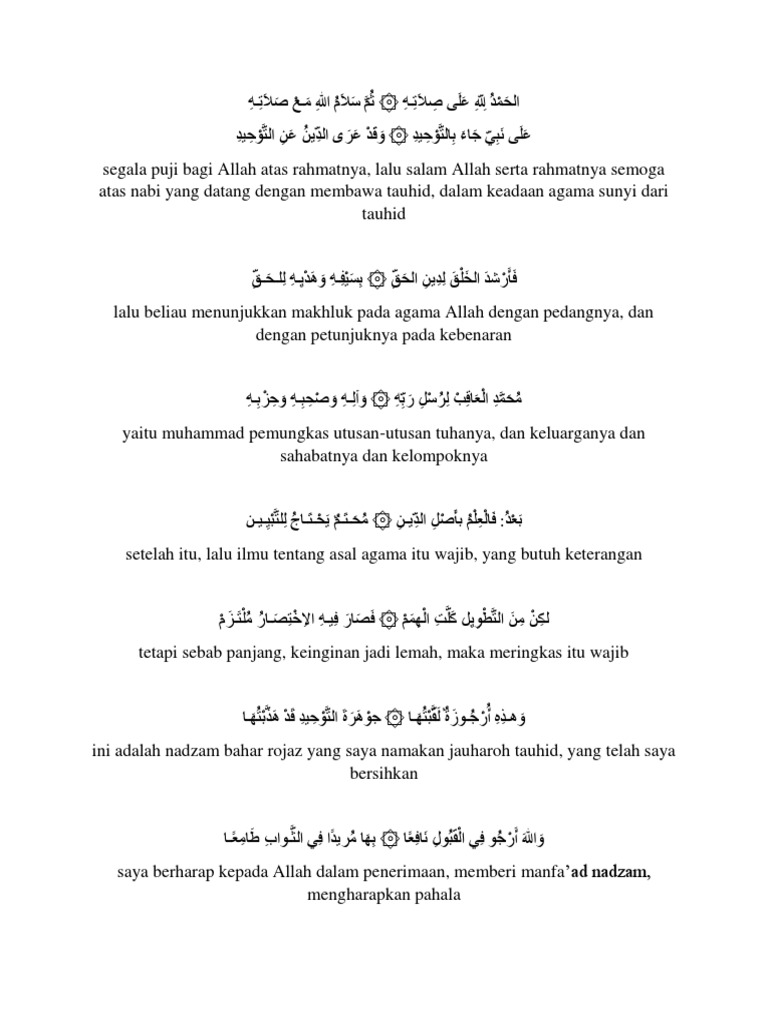 الحَمْدُ لِلّٰهِ عَلَى صِلاَتِـهِ ۞ ثُمَّ سَلاَمُ اللهِ مَـعْ صَلاَتِـهِ
عَلَى نَبِيّ جَاءَ بِالتَّوْحِيدِ ۞ وَقَدْ عَرَى الدِّينُ عَنِ التَّوْحِيدِ
segala puji bagi Allah atas rahmatnya, lalu salam Allah serta rahmatnya semoga
atas nabi yang datang dengan membawa tauhid, dalam keadaan agama sunyi dari
tauhid
فَأَرْشَدَ الخَلْقَ لِدِينِ الحَقّ ۞ بِسَيْفِـهِ وَهَدْيِـهِ لِلـحَـقّ
lalu beliau menunjukkan makhluk pada agama Allah dengan pedangnya, dan
dengan petunjuknya pada kebenaran
مُحَمَّدِ الْعَاقِبْ لِرُسْلِ رَبِّهِ ۞ وَآلِـهِ وَصْحبِـهِ وَحِزْبِـهِ
yaitu muhammad pemungkas utusan-utusan tuhanya, dan keluarganya dan
sahabatnya dan kelompoknya
بَعْدُ: فَالْعِلْمُ بأَصْلِ الدِّيـنِ ۞ مُحَـتَـمٌ يَحْـتَـاجُ لِلتَّبْيِـيـن
setelah itu, lalu ilmu tentang asal agama itu wajib, yang butuh keterangan
لكِنْ مِنَ التَّطْوِيلِ كَلَّتِ الْهِمَمْ ۞ فَصَارَ فِيـهِ الاِخْتِصَـارُ مُلْتَـزَمْ
tetapi sebab panjang, keinginan jadi lemah, maka meringkas itu wajib
وَهـذِهِ أُرْجُـوزَةٌ لَقَّبْتُهَـا ۞ جوْهَرَةَ التَّوْحِيدِ قَدْ هَذَّبْتُهَـا
ini adalah nadzam bahar rojaz yang saya namakan jauharoh tauhid, yang telah saya
bersihkan
وَاللهَ أَرْجُو فِي الْقَبُولِ نَافِعًا ۞ بِهَا مُرِيدًا فِي الثَّـوابِ طَامِعًـا
saya berharap kepada Allah dalam penerimaan, memberi manfa’ad nadzam,
mengharapkan pahala